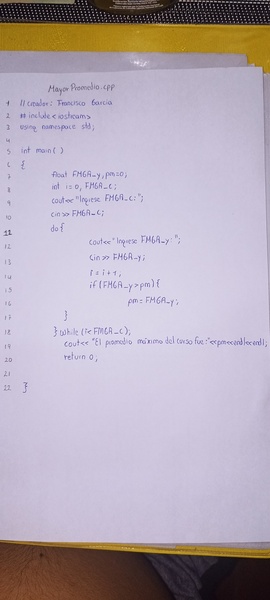 MayorPromedio.cpp
1 // creador: Francisco Garcia
2 # include <iostream>
3 using namespace std;
4
5 int main( )
6 {
7 float FMGA_y, pm=0;
8 int i=0, FMGA_c;
9 cout<<"Ingrese FMGA_c:";
10 cin>> FMGA_c;
11 do{
12 cout<<"Ingrese FMGA_y:";
13 cin>> FMGA_y;
14 i=i+1;
15 if(FMGA_y>pm){
16 pm=FMGA_y;
17 }
18 } while (i<FMGA_c);
19 cout<<"El promedio máximo del curso fue:"<<pm<<endl<<endl;
20 return 0;
21
22 }